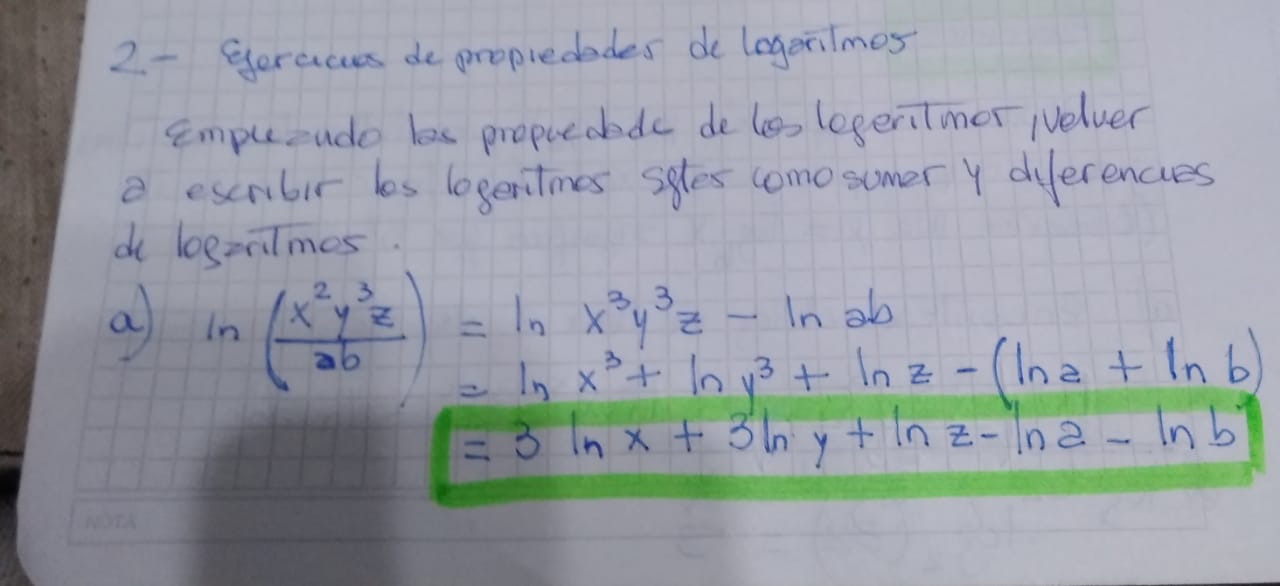 2.- Ejercicios de propiedades de logaritmos
Empleando las propiedade de los logaritmos, volver
a escribir los logaritmos sgtes como sumas y diferencias
de logaritmos.
a) ln (x²y³z / ab) = ln x³y³z - ln ab
= ln x³ + ln y³ + ln z - (ln a + ln b)
= 3 ln x + 3 ln y + ln z - ln a - ln b
NOTA